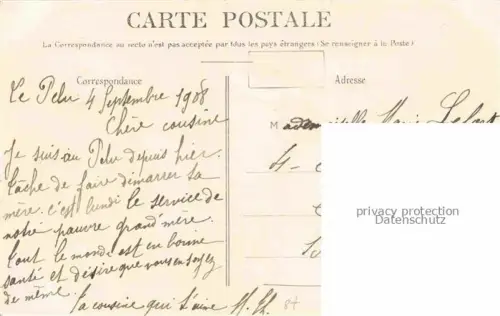 CARTE POSTALE
La Correspondance au recto n'est pas acceptée par tous les pays étrangers (Se renseigner à la Poste)
Correspondance
Adresse
Le Pelu 4 Septembre 1908
Chère cousine
Je suis au Pelu depuis hier.
tâche de faire démarrer ta
mère. c'est lundi le service de
notre pauvre grand'mère.
tout le monde est en bonne
santé et désire que vous en soyez
de même.
Ta cousine qui t'aime
Mademoiselle Marie
4
privacy protection
Datenschutz